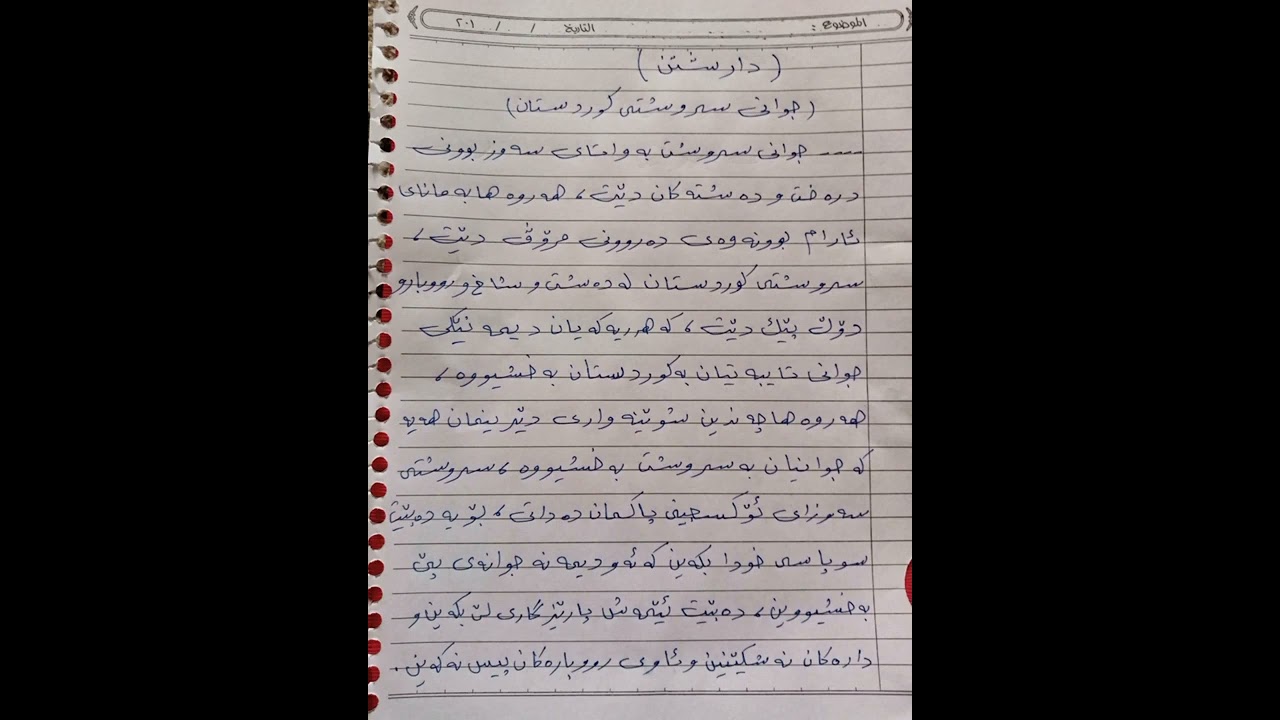 الموضوع : التاريخ / / ٢٠١
( دارشتن )
(جوانی سروشتی کوردستان)
---- جوانی سروشت به واتای سهوز بوونی
درهخت و دهشتهکان دێت، ههروهها به مانای
ئارام بوونهوهی دهروونی مرۆڤ دێت،
سروشتی کوردستان له دهشت و شاخ و رووبارو
دۆڵ پێك دێت، که ههریهکهیان دیمهنێکی
جوانی تایبهتیان به کوردستان بهخشیووه،
ههروهها چهندین شوێنهواری دێرینمان ههیه
که جوانیان به سروشت بهخشیووه، سروشتی
سهوزای ئۆکسجینی پاکمان دهدات، بۆیه دهبێت
سوپاسی خودا بکهین که ئهو دیمهنه جوانهی پێ
بهخشیووین، دهبێت ئێمهش پارێزگاری لێ بکهین و
دارهکان نهشکێنین و ئاوی رووبارهکان پیس نهکهین.